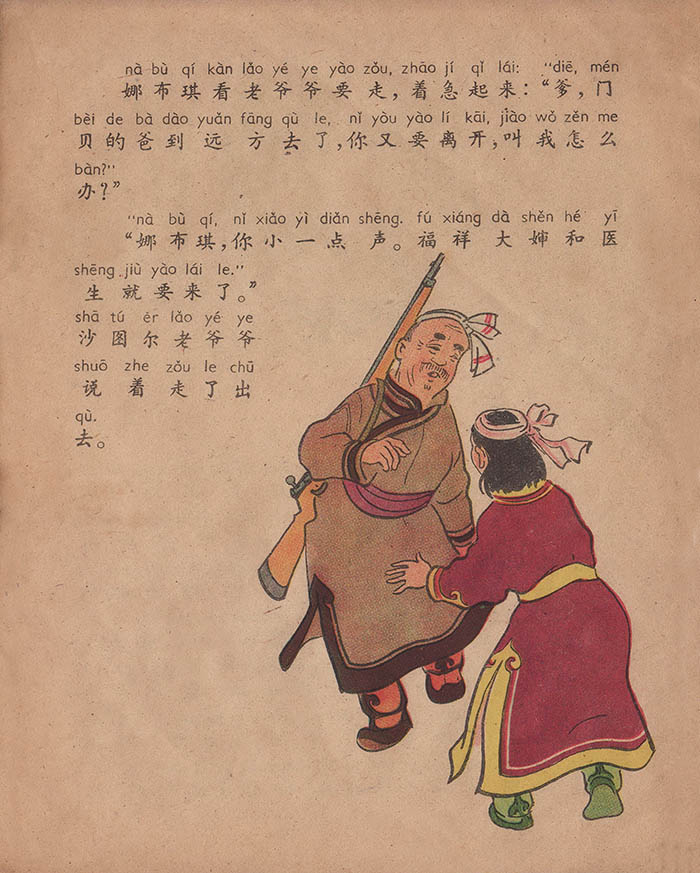 nà bù qí kàn lǎo yé ye yào zǒu, zhāo jí qǐ lái: "diē, mén
娜布琪看老爷爷要走，着急起来："爹，门
bèi de bà dào yuǎn fāng qù le, nǐ yòu yào lí kāi, jiào wǒ zěn me
贝的爸到远方去了，你又要离开，叫我怎么
bàn?"
办？"
"nà bù qí, nǐ xiǎo yì diǎn shēng. fú xiáng dà shěn hé yī
"娜布琪，你小一点声。福祥大婶和医
shēng jiù yào lái le."
生就要来了。"
shā tú ěr lǎo yé ye
沙图尔老爷爷
shuō zhe zǒu le chū
说着走了出
qù.
去。